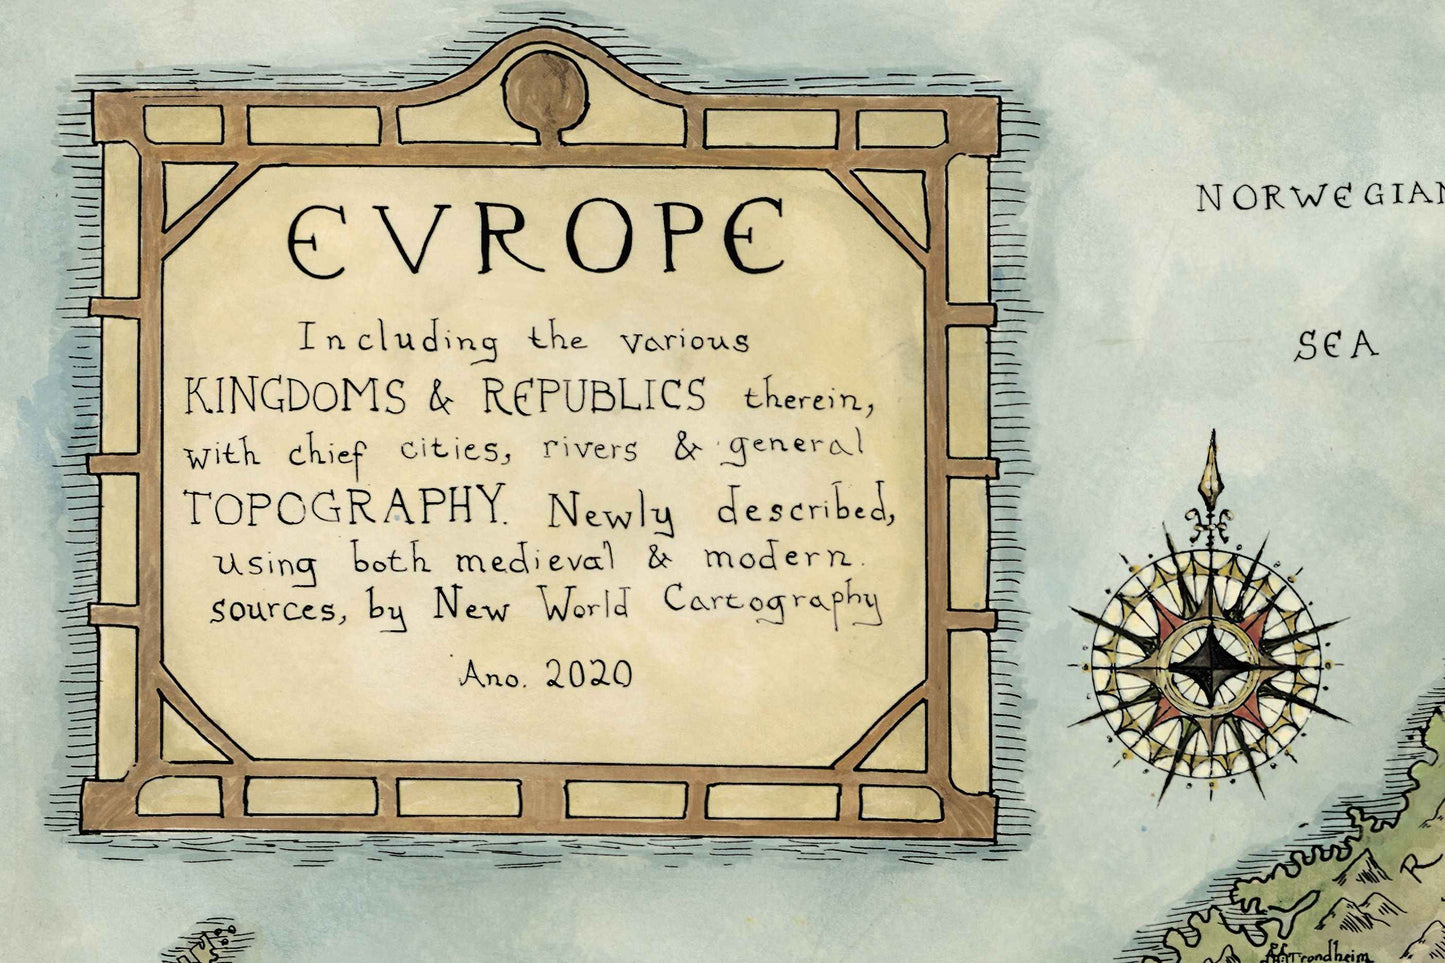 EVROPE
Including the various
KINGDOMS & REPUBLICS therein,
with chief cities, rivers & general
TOPOGRAPHY. Newly described,
using both medieval & modern.
sources, by New World Cartography
Ano. 2020
NORWEGIAN
SEA
R
Trondheim